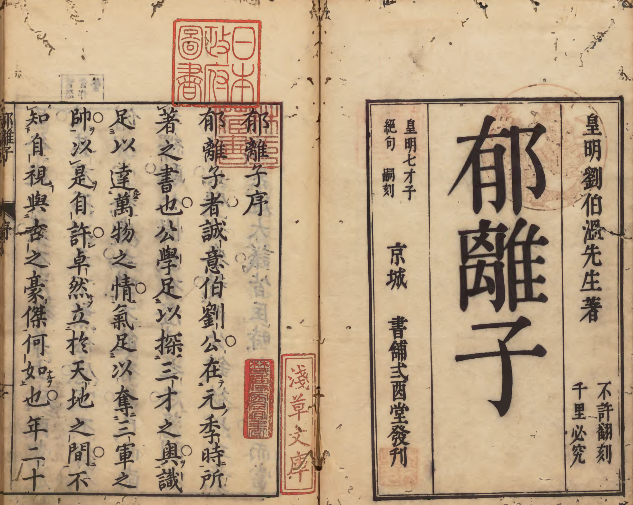 皇明劉伯溫先生著
不許翻刻
千里必究
郁離子
皇明七才子
絕句 嗣刻
京城 書舖弍酉堂發刋
日本
政府
圖書
淺草文庫
郁離子序
郁離子者誠意伯劉公在元季時所
著之書也公學足以探三才之奧識
足以達萬物之情氣足以奪三軍之
帥以是自許卓然立於天地之間不
知自視與古之豪傑何如也年二十
郁離子